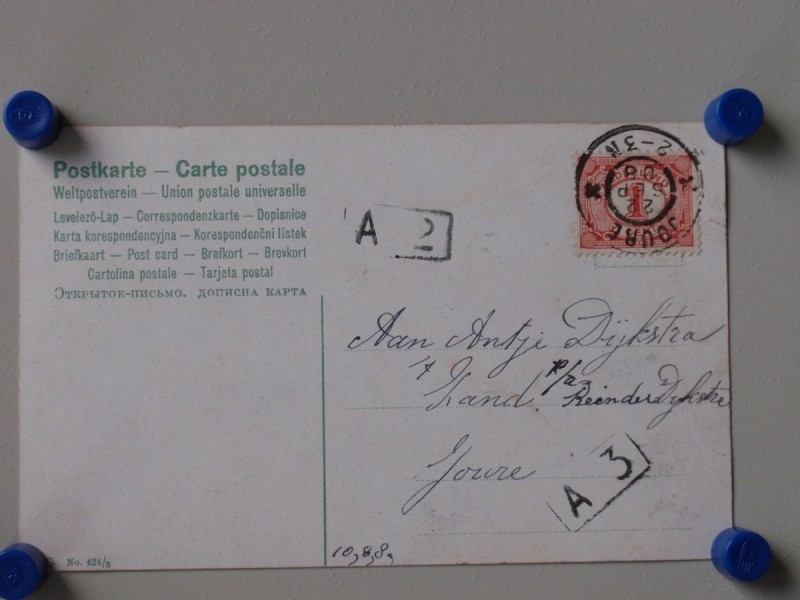 Postkarte — Carte postale
Weltpostverein — Union postale universelle
Levelező-Lap — Correspondenzkarte — Dopisnice
Karta korespondencyjna — Korespondenční listek
Briefkaart — Post card — Brefkort — Brevkort
Cartolina postale — Tarjeta postal
Открытое-письмо. дописна карта
A 2
JOURE
22 SEP 08
2-3N
1
Aan Antje Dijkstra
't Zand p/a Reinder Dijkstra
Joure
A 3
No. 424/3
10,8,8,